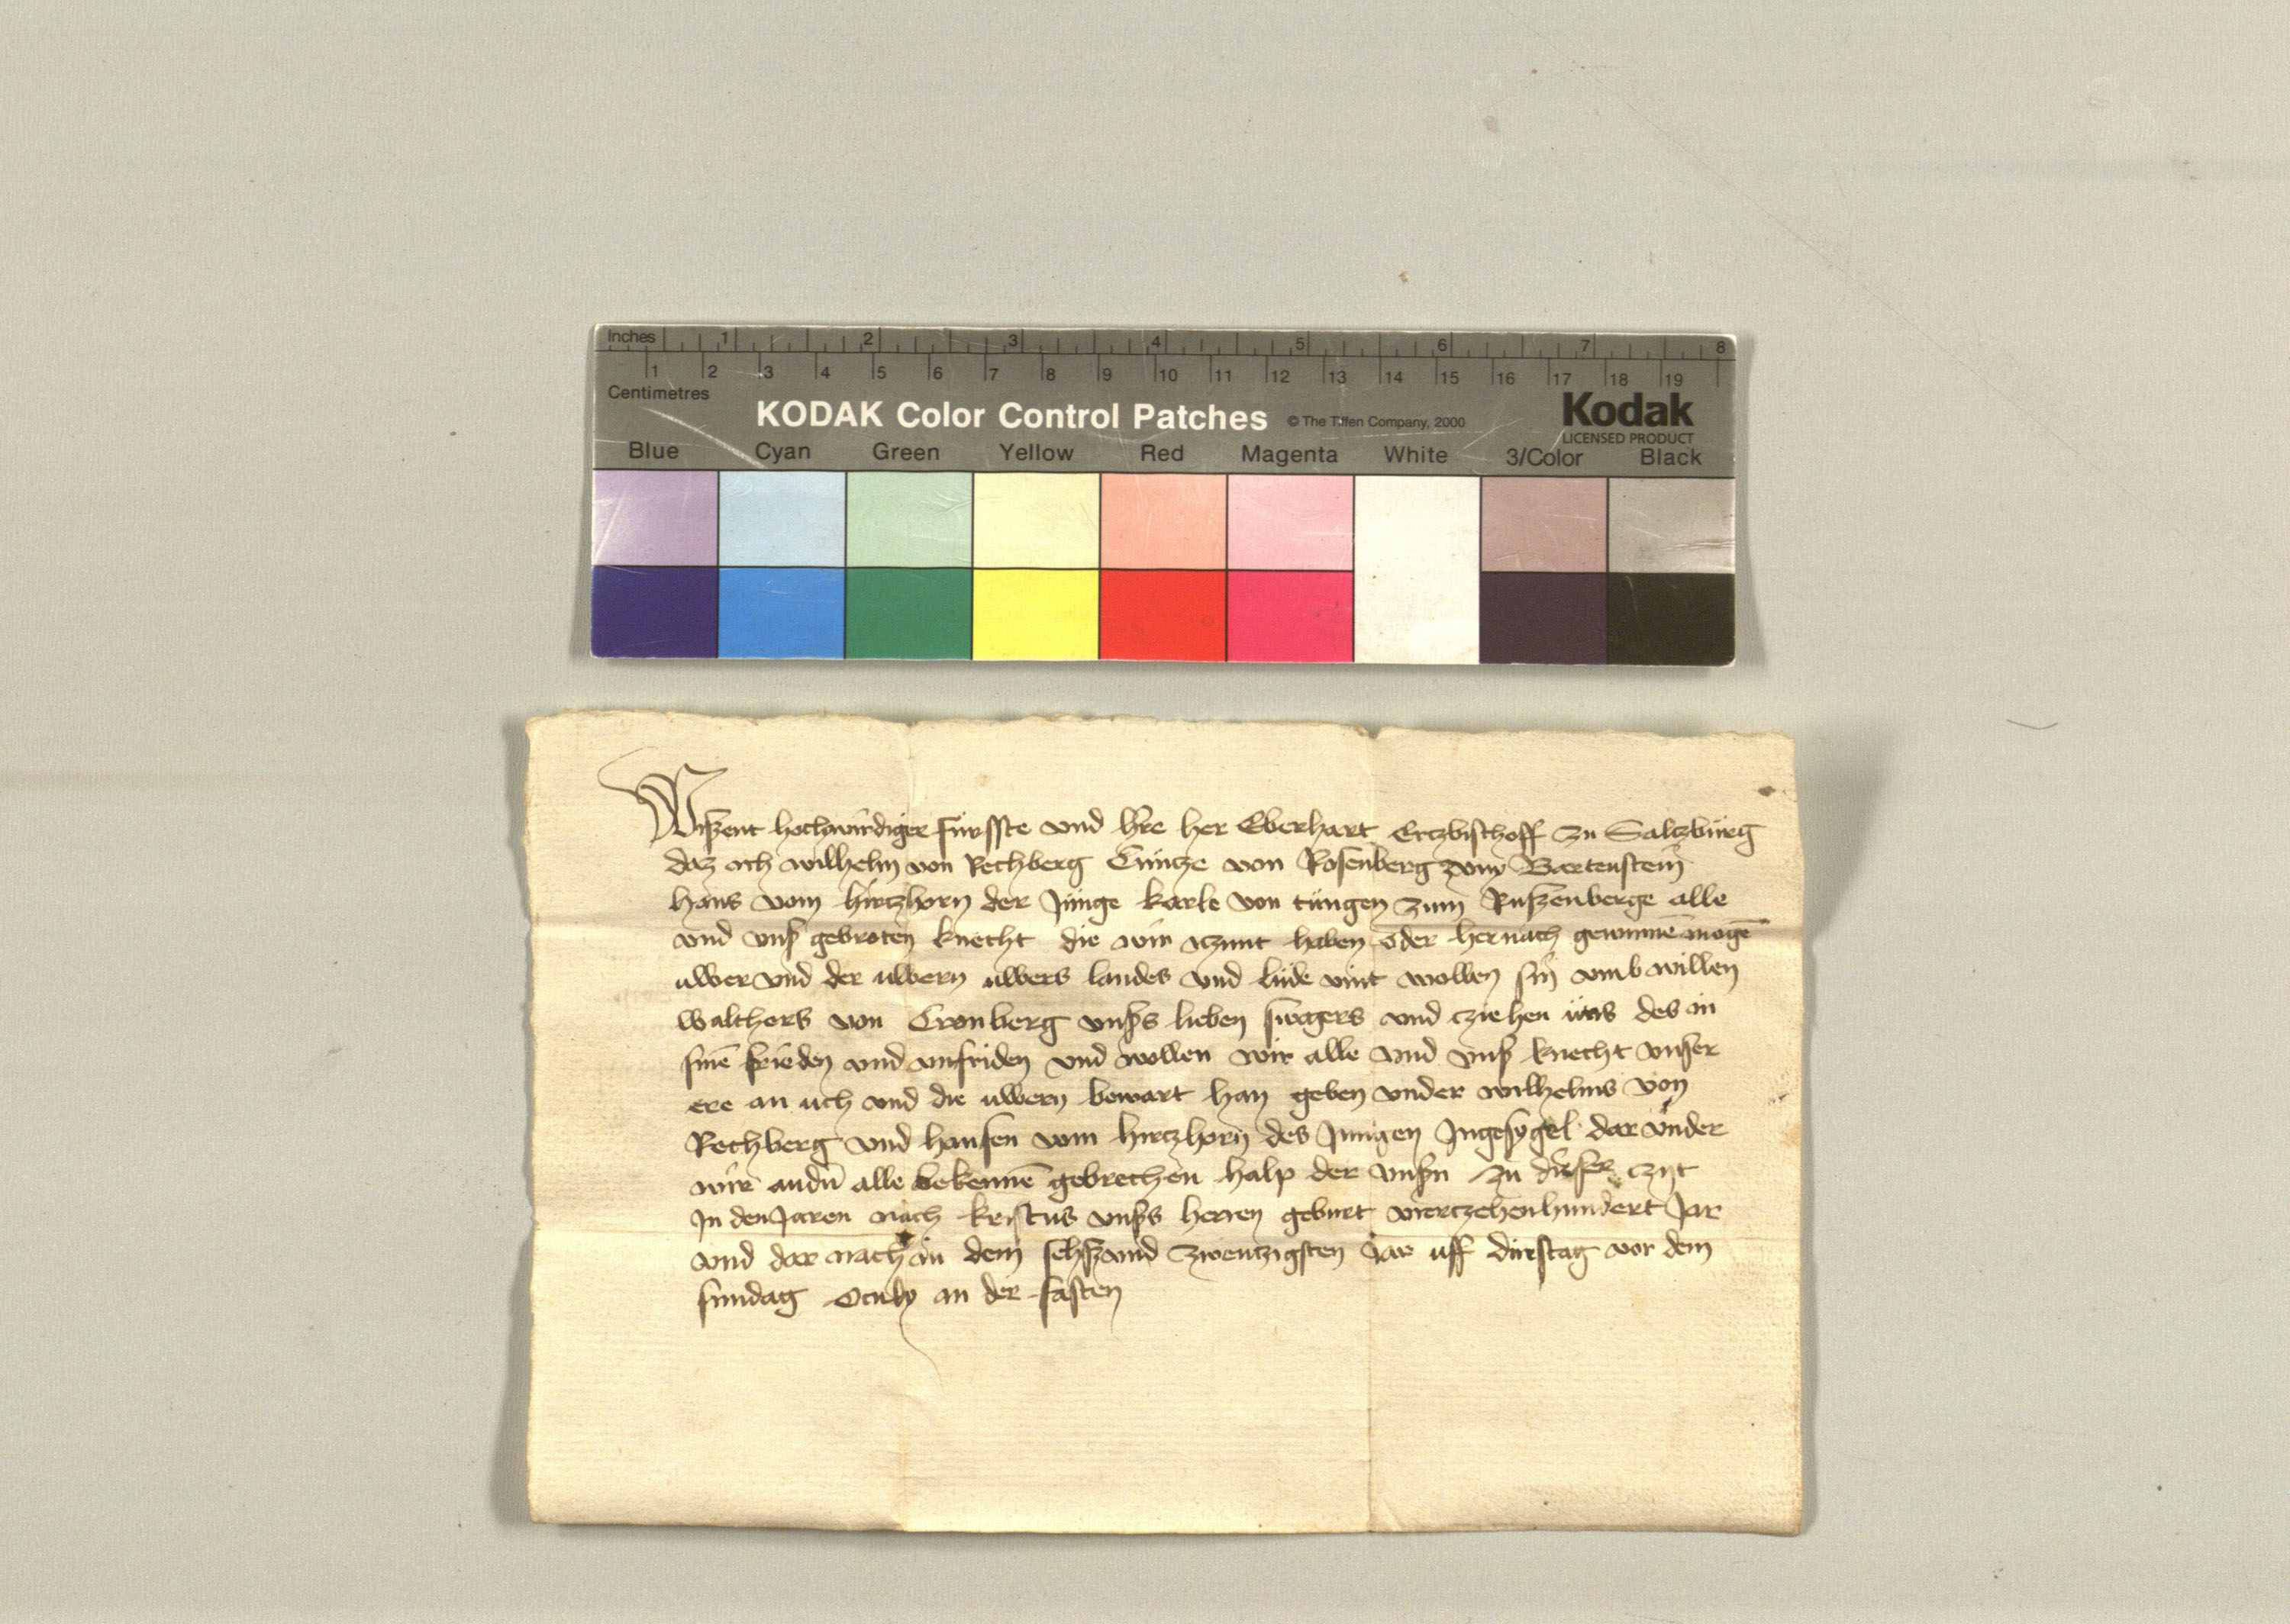 Inches 1 2 3 4 5 6 7 8
1 2 3 4 5 6 7 8 9 10 11 12 13 14 15 16 17 18 19
Centimetres
KODAK Color Control Patches © The Tiffen Company, 2000 Kodak
LICENSED PRODUCT
Blue Cyan Green Yellow Red Magenta White 3/Color Black
Wißent hochwirdiger fursste vnd h're her Eberhart Ertzbischoff zu Saltzburg
daz ich wilhelm von Rechberg Cuntze von Rosenberg zum Bartenstein
hans vom hirtzhorn der Junge karle von tungen zum Rußenberge alle
vnd vnß gebroten knecht die wir iczunt haben oder hernach gewinnē mogē
uwer vnd der uwern uwers landes vnd lude vint wollen sin vmb willen
walthers von Cronberg vnßs lieben swagers vnd cziehen uns des in
sinē frieden vnd vnfriden vnd wollen wir alle vnd vnß knecht vnser
ere an uch vnd die uwern bewart han geben vnder wilhelms von
Rechberg vnd hansen vom hirtzhorn des Jungen Ingesygel dar vnder
wir andn alle bekennē gebrechen halp der vnßn zu dieser czyt
In den Jaren nach kristus vnßs herren geburt viertzehenhundert Jar
vnd dar nach in dem sehßvnd zwentzigsten Jar uff dinstag vor dem
sundag Oculy in der fasten